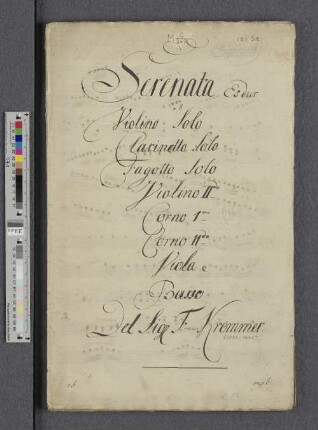 Serenata Es dur
Violino Solo
Clarinetto Solo
Fagotto Solo
Violino IIdo
Corno 1mo
Corno IIdo
Viola e
Basso
Del Sigr F: Krommer.